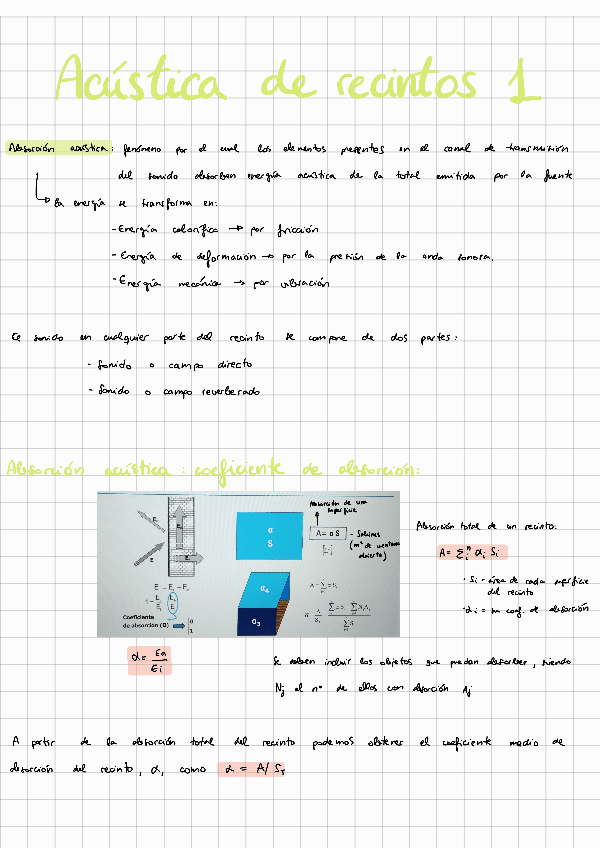 Acústica de recintos 1
Absorción acústica: fenómeno por el cual los elementos presentes en el canal de transmisión
del sonido absorben energía acústica de la total emitida por la fuente
la energía se transforma en:
- Energía calorífica → por fricción
- Energía de deformación → por la presión de la onda sonora.
- Energía mecánica → por vibración
Ce sonido en cualquier parte del recinto se compone de dos partes:
- Sonido o campo directo
- Sonido o campo reverberado
Absorción acústica: coeficiente de absorción:
Absorción de una
superficie
α
S
A = α S
- Sabines
(m² de ventana
abierta)
Absorción total de un recinto:
A = Σᵢⁿ αᵢ Sᵢ
- Si = área de cada superficie
del recinto
- αi = su coef. de absorción
Coeficiente
de absorción (α)
0
1
α₄
α₃
α = Ea/Ei
Se deben incluir los objetos que puedan absorber, siendo
Nj el nº de ellos con absorción Aj
A partir de la absorción total del recinto podemos obtener el coeficiente medio de
absorción del recinto, α, como α = A/ST